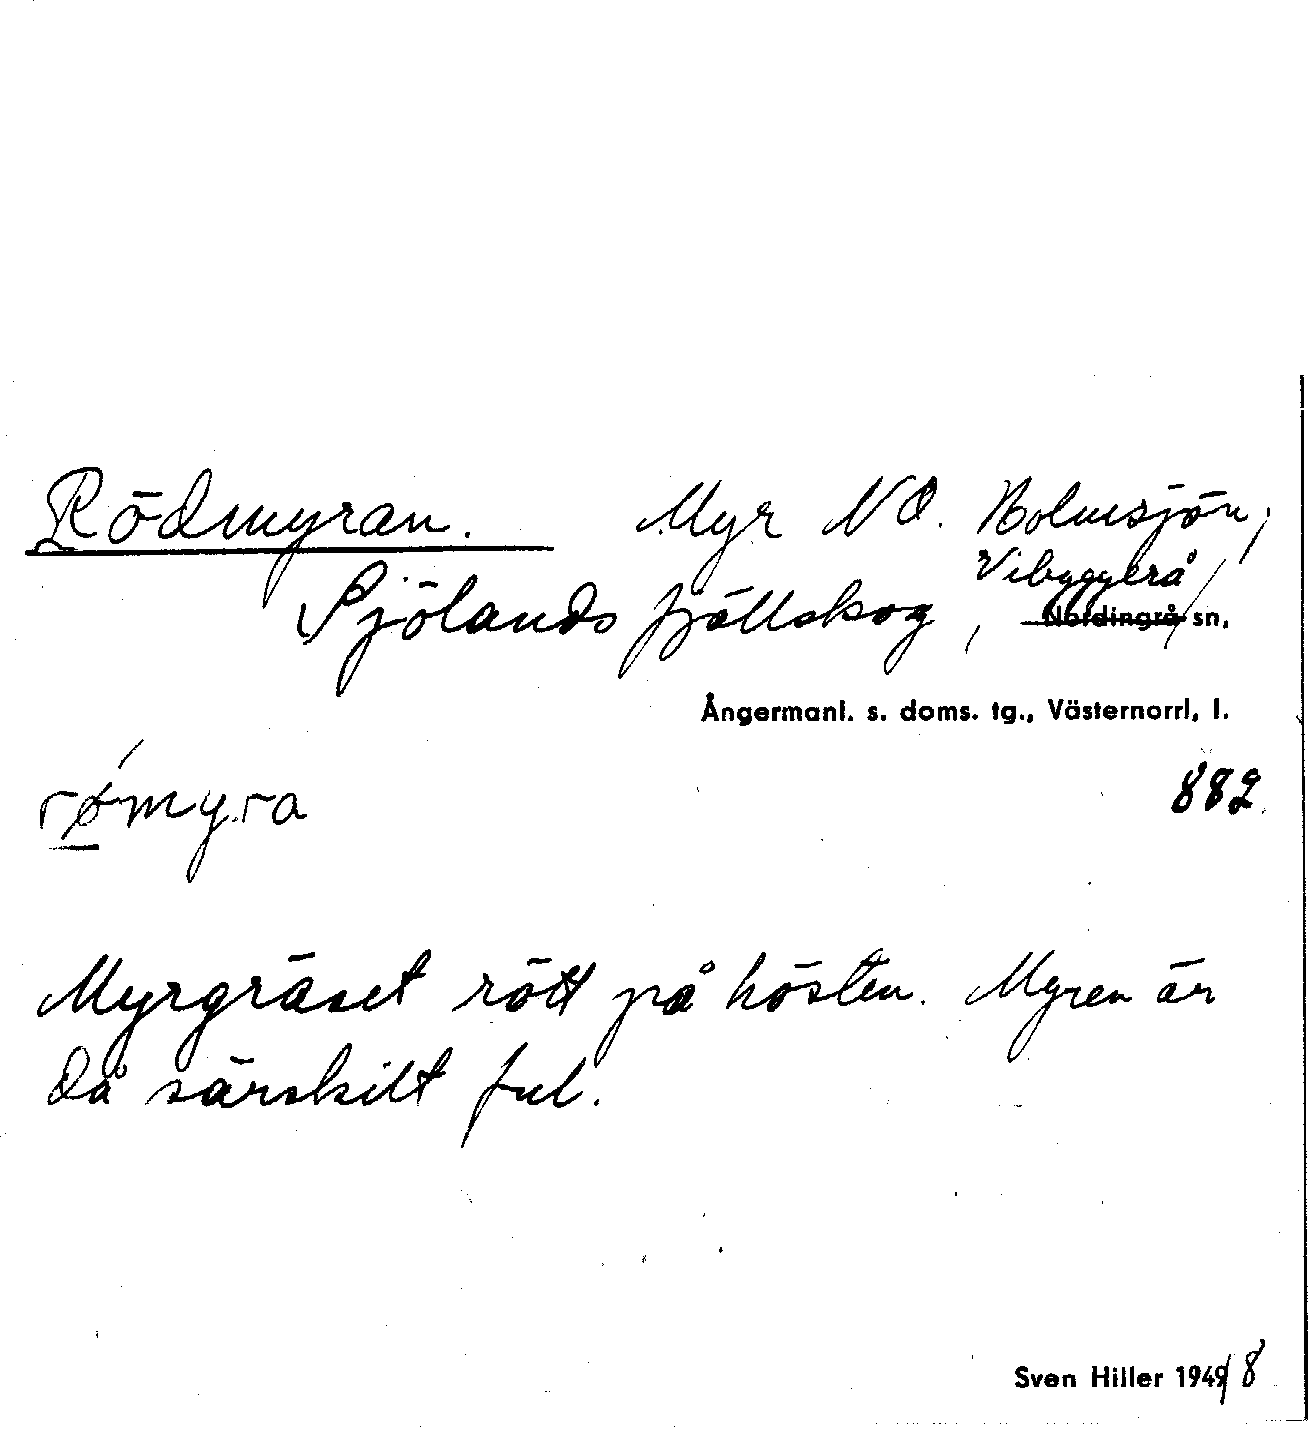 Rödmyran. Myr NO. Holmsjön,
Vibyggerå
Sjölands fjällskog, Nordingrå sn,
Ångermanl. s. doms. tg., Västernorrl, l.
rø´myra 882
Myrgräset rött på hösten. Myren är
då särskilt ful.
Sven Hiller 1949 8